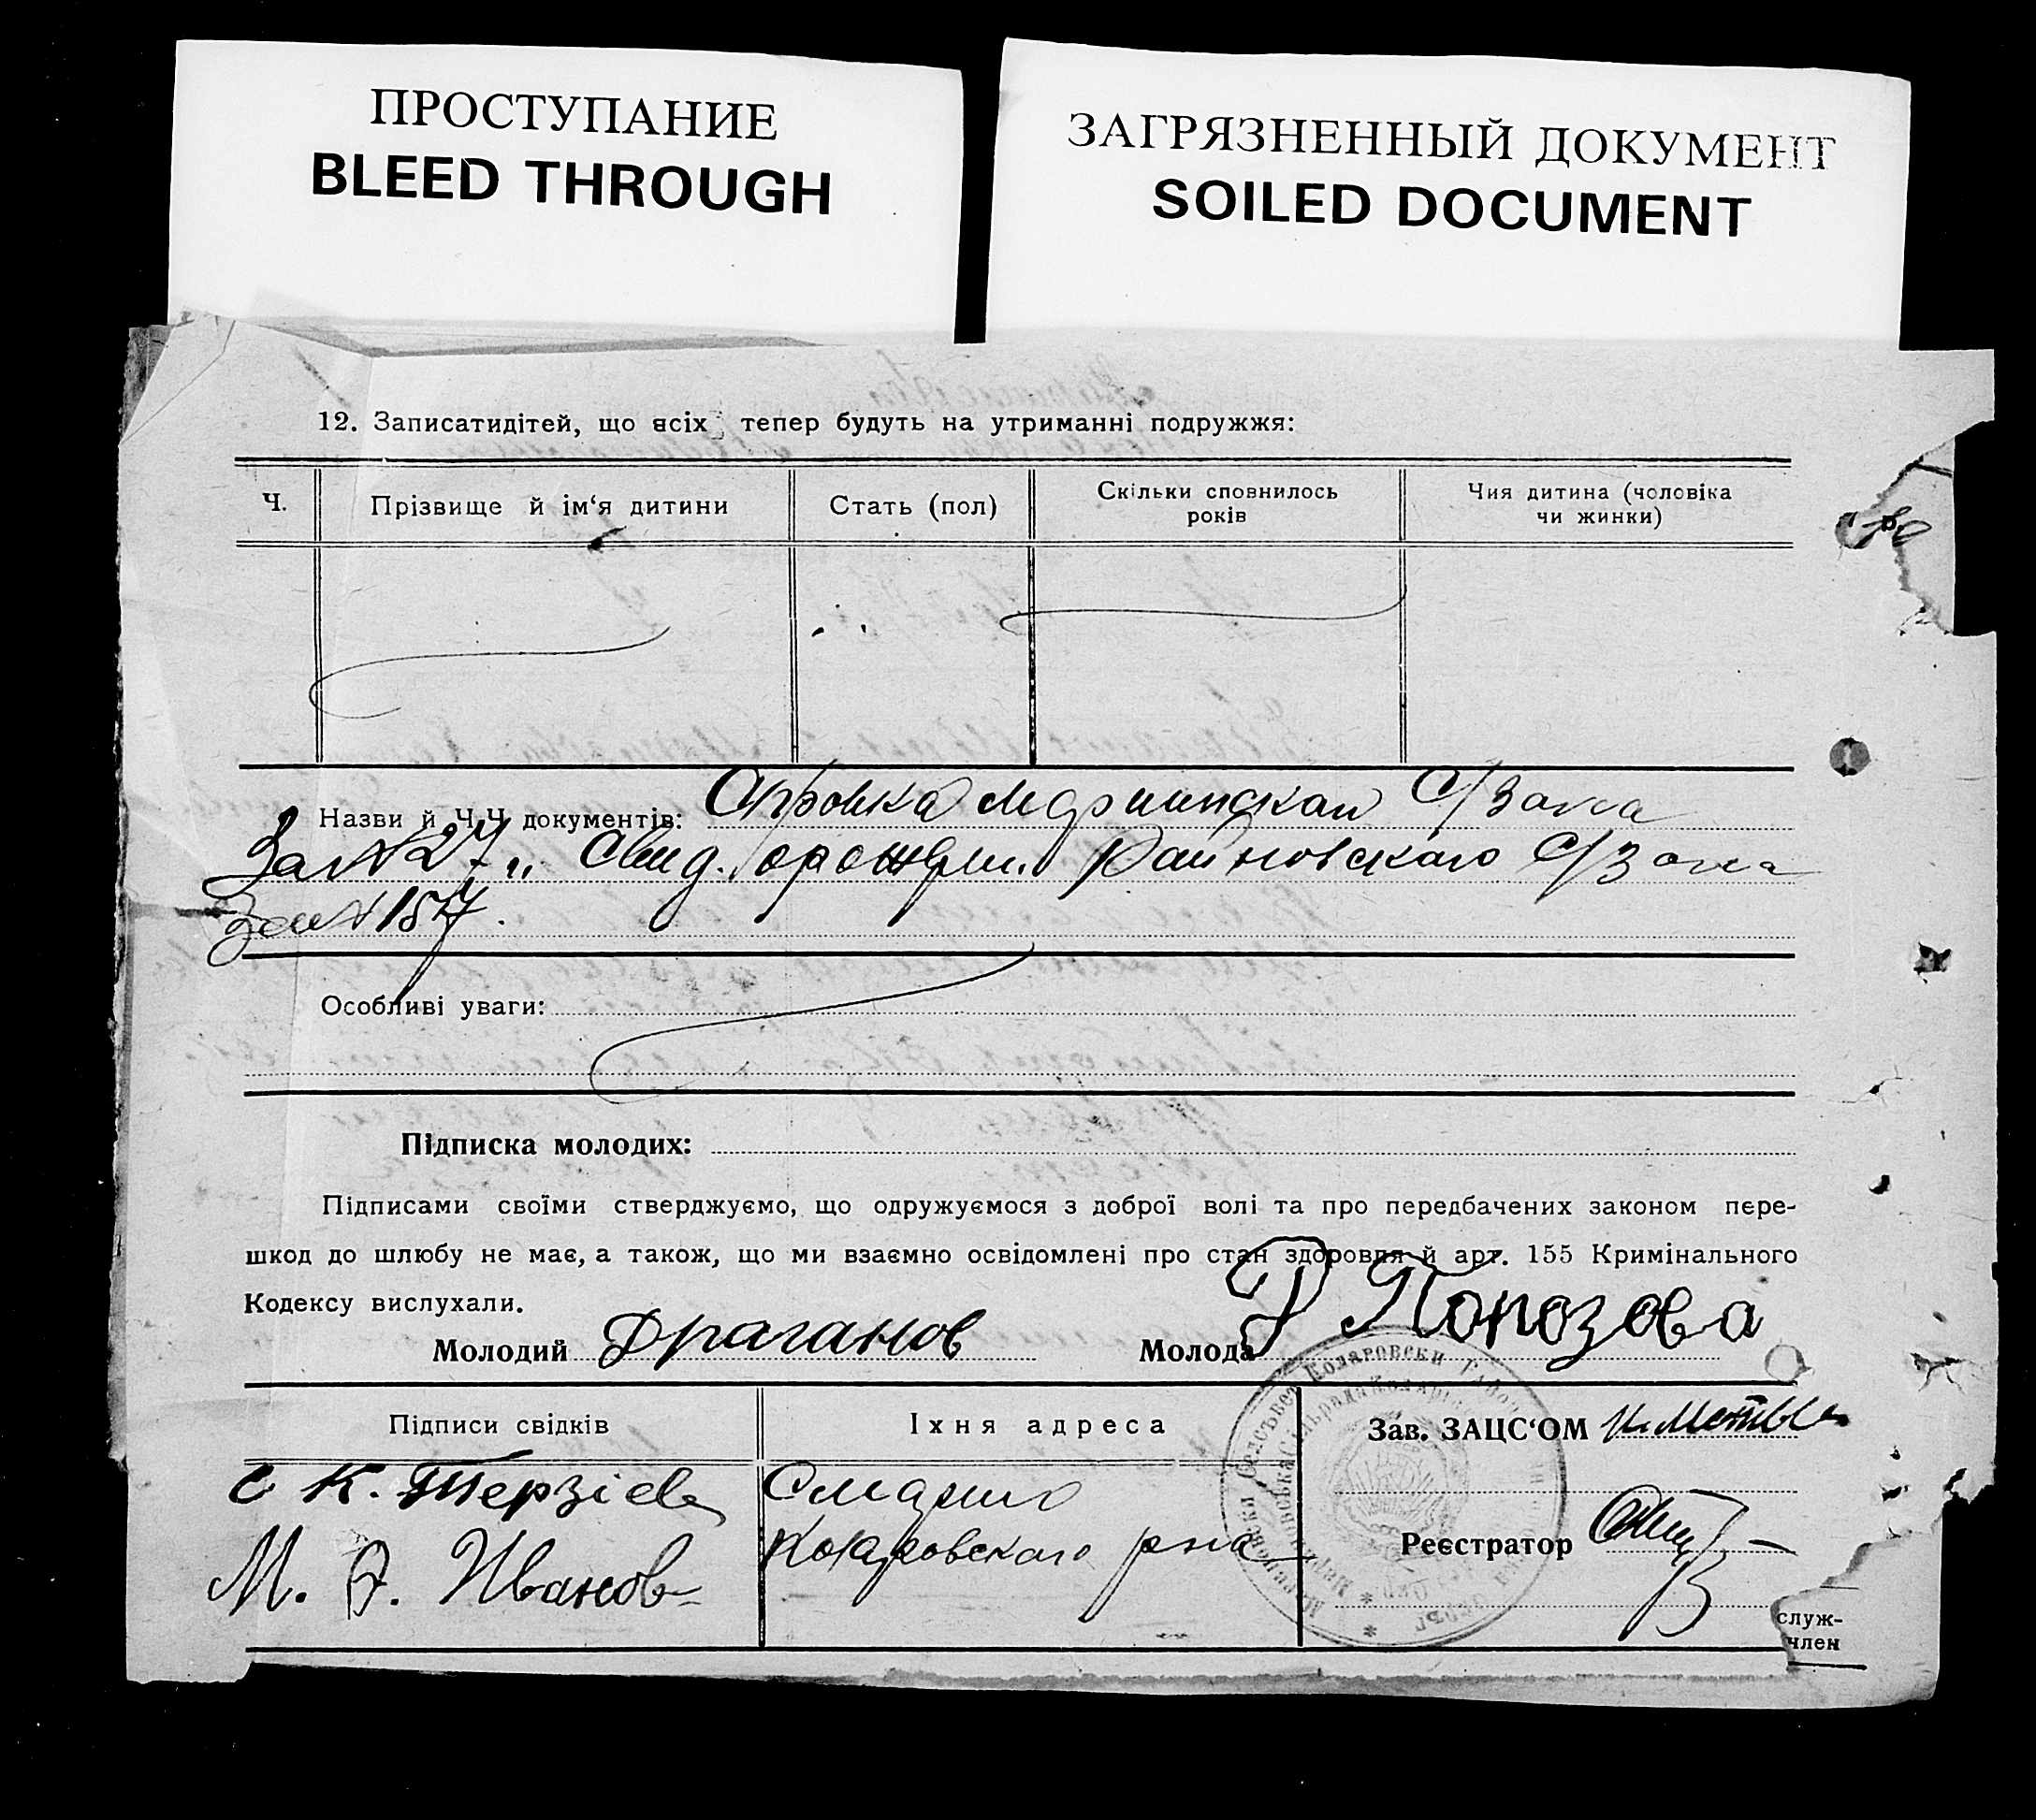 ПРОСТУПАНИЕ
BLEED THROUGH
ЗАГРЯЗНЕННЫЙ ДОКУМЕНТ
SOILED DOCUMENT
12. Записатидітей, що всіх тепер будуть на утриманні подружжя:
Ч.
Прізвище й ім‘я дитини
Стать (пол)
Скільки сповнилось
років
Чия дитина (чоловіка
чи жинки)
Назви й Ч.Ч документів: С/Загса
За №27 и Свид. о рожден. Райновского С/Загса
За №157.
Особливі уваги:
Підписка молодих:
Підписами своїми стверджуємо, що одружуємося з доброї волі та про передбачених законом пере-
шкод до шлюбу не має, а також, що ми взаємно освідомлені про стан здоровля й арт. 155 Кримінального
Кодексу вислухали.
Молодий Драганов
Молода Попозова
Підписи свідків
Їхня адреса
Зав. ЗАЦС‘ОМ
С К. Терзіев
М. Иванов
Коларовского рна
Реєстратор
служ-
член